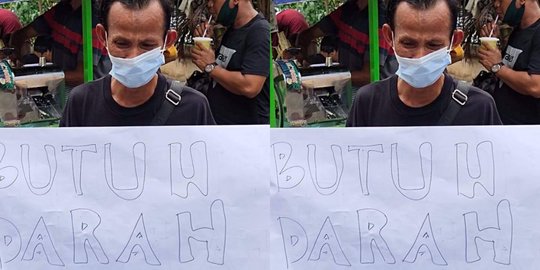 BUTUH
DARAH
BUTUH
DARAH